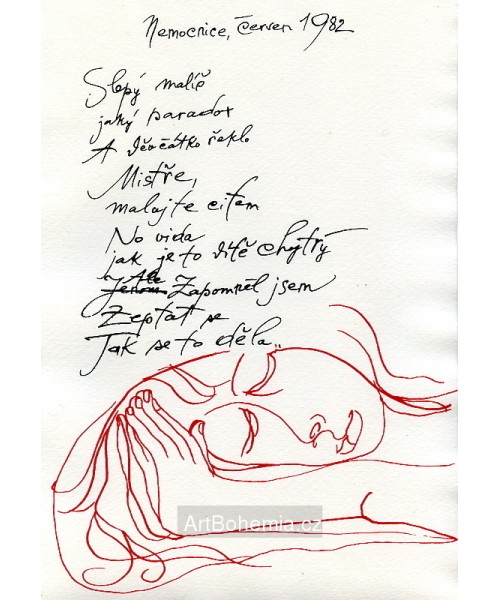 Nemocnice, červen 1982
Slepý malíř
jaký paradox
A děvčátko řeklo
Mistře,
malujte citem
No vida
jak je to dítě chytrý
Ale Zapomněl jsem
Zeptat se
Jak se to dělá..
ArtBohemia.cz